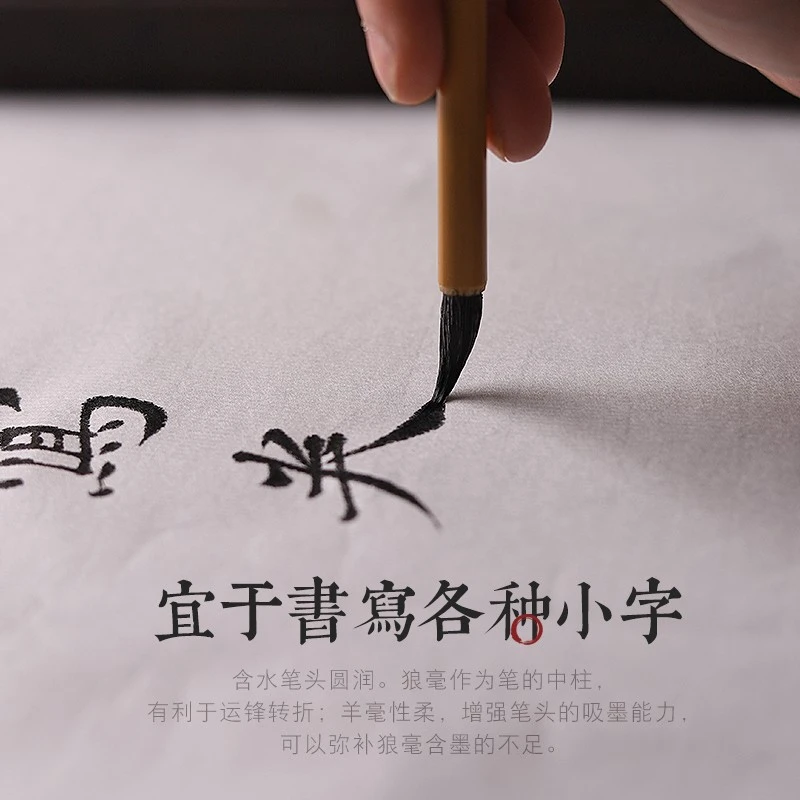 宜于書寫各种小字
含水笔头圆润。狼毫作为笔的中柱，
有利于运锋转折；羊毫性柔，增强笔头的吸墨能力，
可以弥补狼毫含墨的不足。